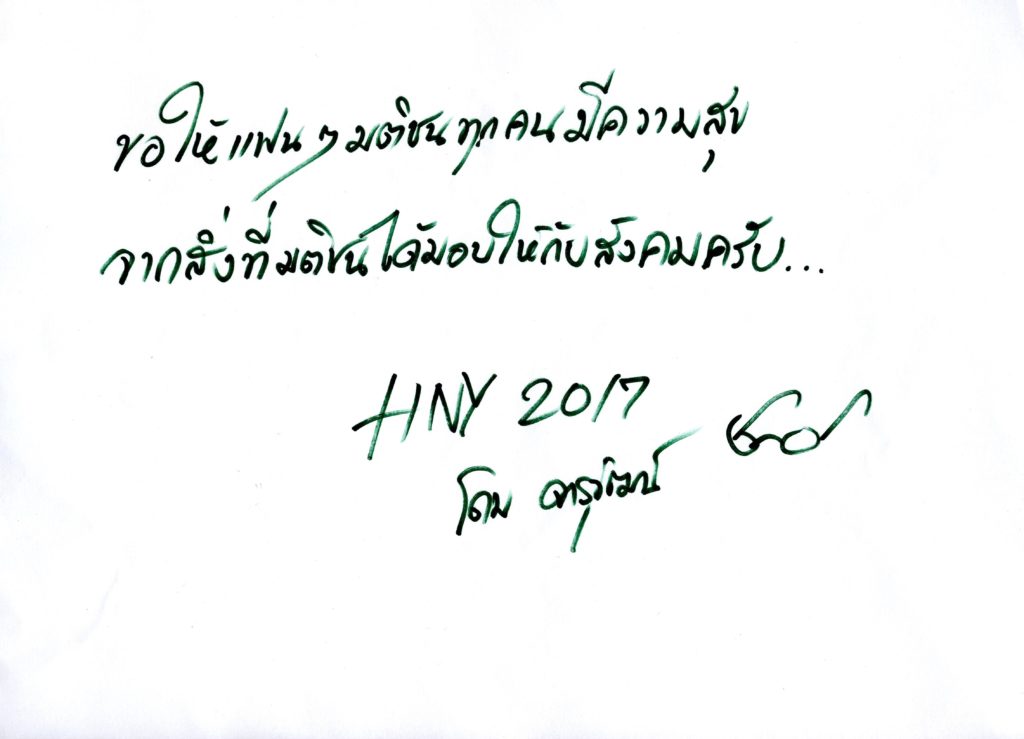 ขอให้แฟนๆ มติชนทุกคนมีความสุข
จากสิ่งที่มติชนได้มอบให้กับสังคมครับ...
HNY 2017
โดม จารุวัฒน์